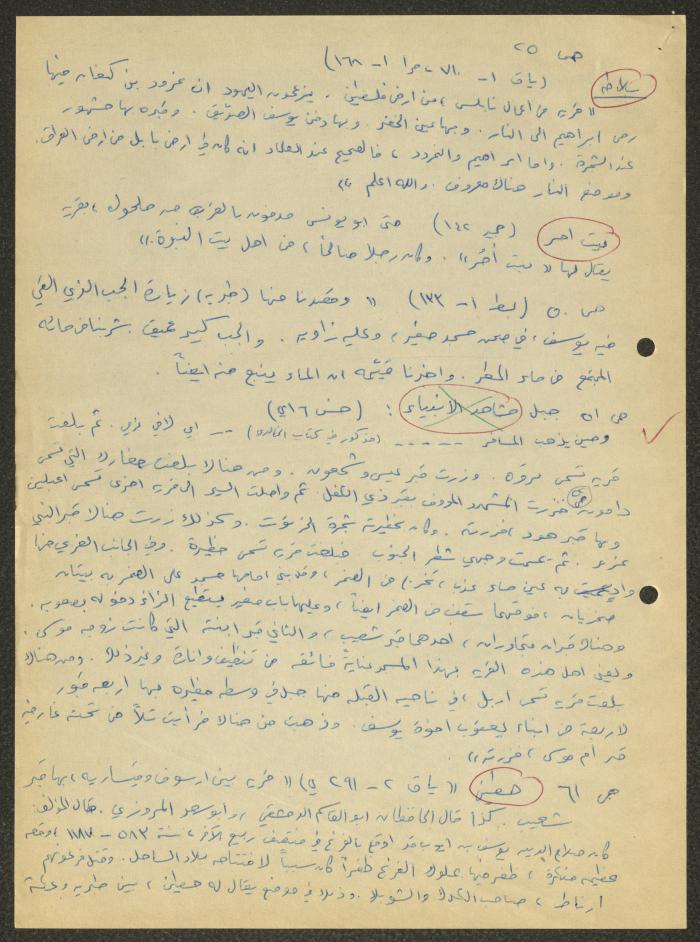 ص ٢٥
بلاطه (ياق ١ - ٧١٠، مرا ١ - ١٦٨)
" قرية من اعمال نابلس، من ارض فلسطين. يزعمون اليهود ان نمرود بن كنعان فيها
رمى ابراهيم الى النار. وبها عين الخضر. وبها دفن يوسف الصديق. وقبره بها مشهور
عند الشجرة. واما ابراهيم والنمرود، فالصحيح عند العلماء انه كان في ارض بابل من ارض العراق.
وموضع النار هناك معروف. والله اعلم "،
بيت امر (جير ١٤٢) متى ابو يونس مدفون بالقرب من حلحول، بقرية
يقال لها " بيت أمر ". وكان رجلا صالحا، من اهل بيت النبوة.".
ص ٥٠ (بط ١ - ١٣٣) " وقصدنا منها (طبرية) زيارة الجب الذي القي
فيه يوسف، في صحن مسجد صغير، وعليه زاوية. والجب كبير عميق. شربنا من مائه
المجتمع من ماء المطر. واخبرنا قيّمه ان الماء ينبع منه ايضاً.
ص ٥١ جبل مشاهد الأنبياء : (خس ١٦ي)
وحين يذهب المسافر ----- (مذكور في كتاب الخالدي) -- اي لاقي نزي. ثم بلغت
قرية تسمى بروة. وزرت قبر عيس وشمعون. ومن هنالا بلغت مغارلا التي تسمى
دامون، فزرت المشهد المعروف بقبر ذي الكفل. ثم واصلت السير الى قرية اخرى تسمى اعبلين
وبها قبر هود، فزرته. وكان بحظيرته شجرة الخرنوب. وكذلك زرت هنالا قبر النبي
عزير. ثم يممت وجهي شطر الجنوب فبلغت قرية تسمى حظيرة. وفي الجانب الغربي منها
واد به عين ماء عذب، تخرج من الصخر، وقد بني امامها مسجد على الصخر به بيتان
صخريان، فوقهما سقف من الصخر ايضاً، وعليهما باب صغير يستطيع الزائر دخوله بصعوبه.
وهنالا قبران متجاوران، احدهما قبر شعيب، والثاني قبر ابنته التي كانت زوجه موسى.
ويعني اهل هذه القرية بهذا المسجد عناية فائقه من تنظيف وانارة وغير ذلك. ومن هنالا
بلغت قرية تسمى اربل، في ناحية القبلة منها جبل في وسطه حظيرة بها اربعه قبور
لاربعة من ابناء يعقوب اخوة يوسف. وذهبت من هنالا فرأيت تلاً من تحته غار فيه
قبر ام موسى، فزرته"،
ص ٦١ حطين " ياق ٢ - ٢٩١ ي) " قرية بين ارسوف وقيسارية، بها قبر
شعيب. كذا قال الحافظان ابو القاسم الدمشقي، وابو سعد المروزي. قال المؤلف:
كان صلاح الدين يوسف بن ايوب قد اوقع بالفرنج في منتصف ربيع الآخر، سنة ٥٨٣ - ١١٨٧، وقعه
عظيمه منكرة، ظفر فيها بملوك الفرنج ظفراً كان سبباً لافتتاحه بلاد الساحل. وقتل فرعونهم
ارناط، صاحب الكرك والشوبك. وذلك في موضع يقال له حطين، بين طبرية وعكة